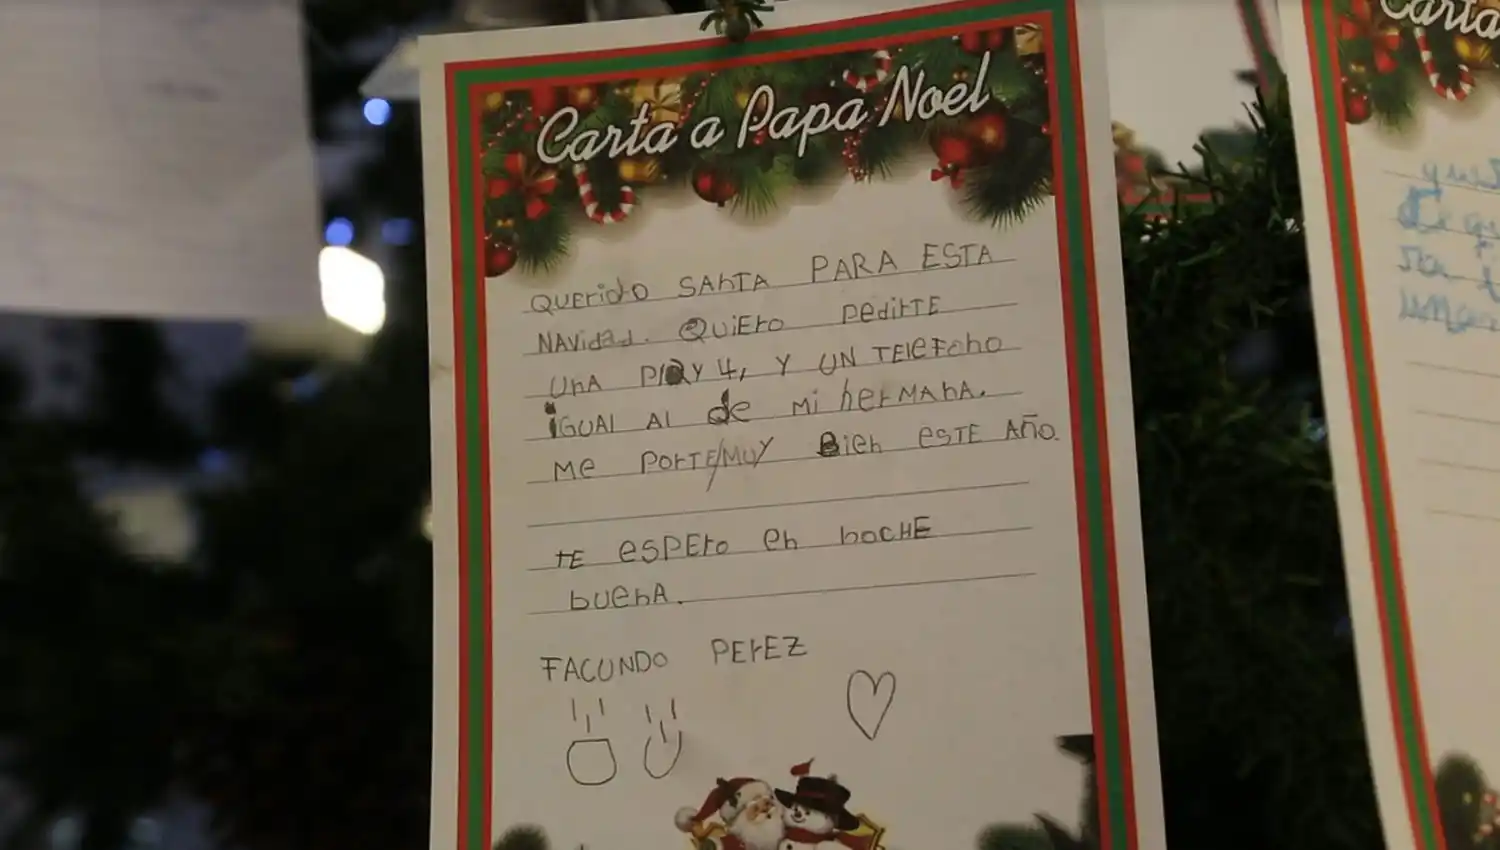 Carta a Papa Noel
QUErido SAnTA PARA ESTA
NAVidad. QUiEro pedirTE
UnA PlAY 4, Y UN TElEFono
iGUAl Al de Mi herMAnA.
Me PorTE/MUY Bien eSTE AÑO.
TE eSPEro en noCHE
bUenA.
FACUNDO PErEZ
Carta